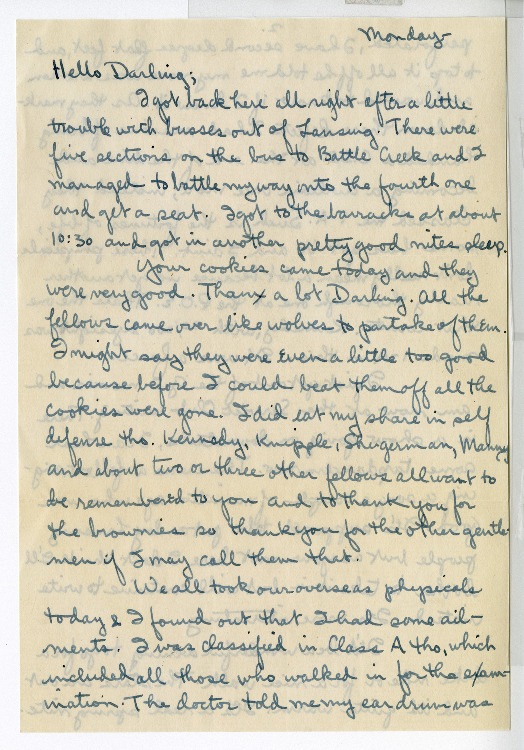 Monday
Hello Darling;
I got back here all right after a little
trouble with busses out of Lansing. There were
five sections on the bus to Battle Creek and I
managed to battle my way onto the fourth one
and get a seat. I got to the barracks at about
10:30 and got in another pretty good nites sleep.
Your cookies came today and they
were very good. Thanx a lot Darling. All the
fellows came over like wolves to partake of them.
I might say they were even a little too good
because before I could beat them off all the
cookies were gone. I did eat my share in self
defense tho. Kennedy, Knipple, Shugerman, Manny
and about two or three other fellows all want to
be remembered to you and to thank you for
the brownies so thank you for the other gentle-
men if I may call them that.
We all took our overseas physicals
today & I found out that I had some ail-
ments. I was classified in Class A tho, which
included all those who walked in for the exam-
ination. The doctor told me my ear drum was